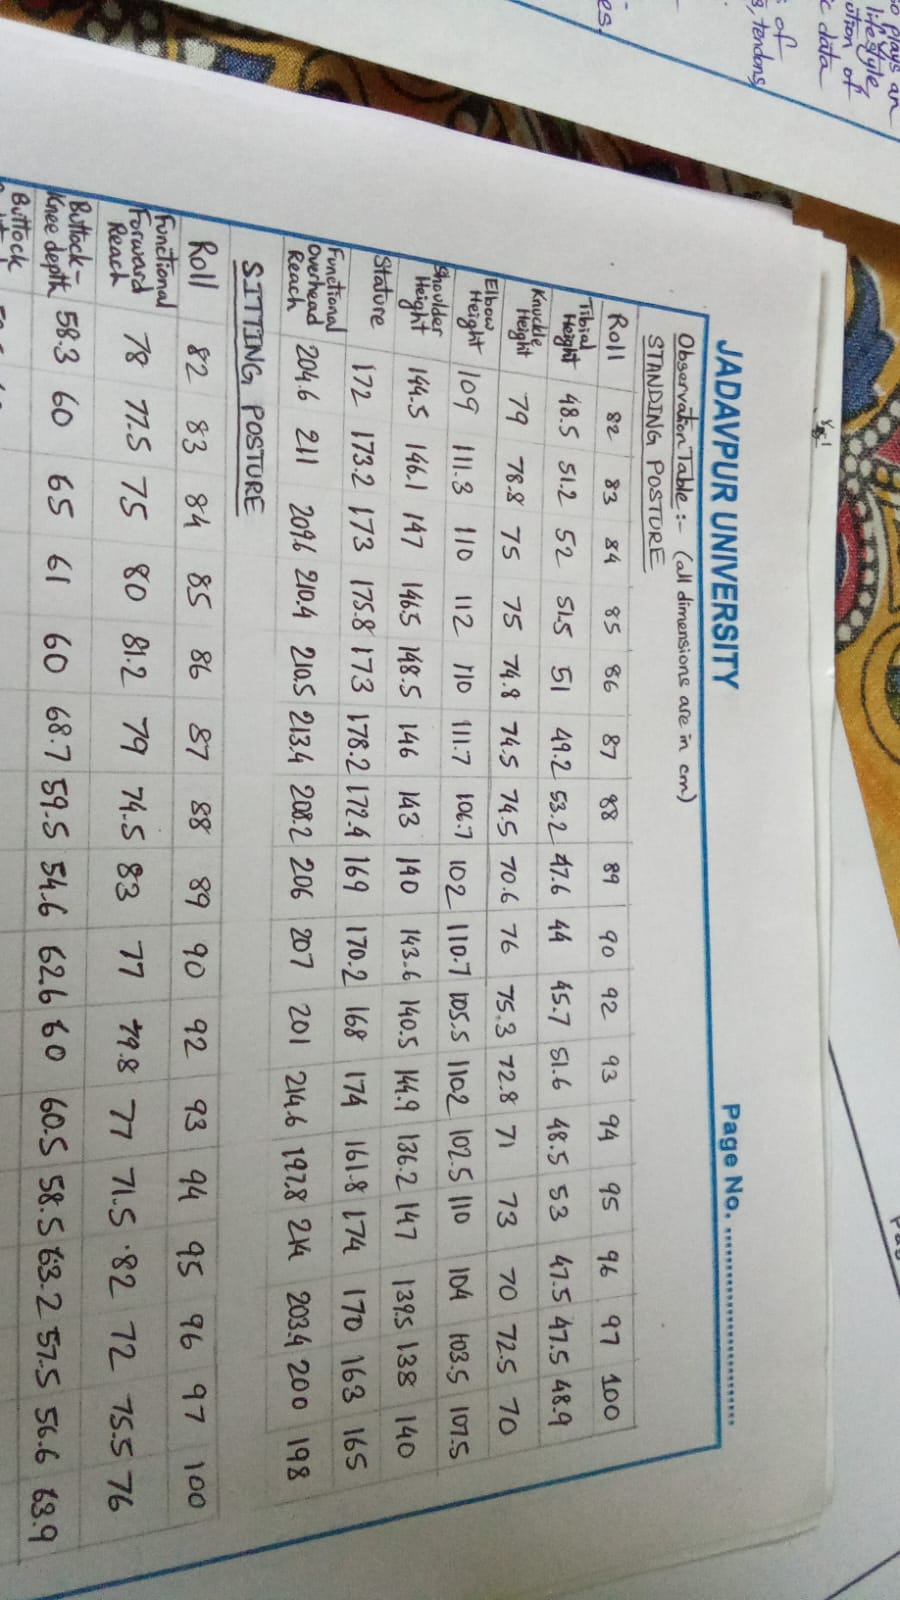 so plays an
lifestyle,
ution of
c data
of
tendons,
es.
JADAVPUR UNIVERSITY Page No. ..............................
Observation Table :- (all dimensions are in cm)
STANDING POSTURE
Roll 82 83 84 85 86 87 88 89 90 92 93 94 95 96 97 100
Tibial Height 48.5 51.2 52 51.5 51 49.2 53.2 47.6 44 45.7 51.6 48.5 53 47.5 47.5 48.9
Knuckle Height 79 78.8 75 75 74.8 74.5 74.5 70.6 76 75.3 72.8 71 73 70 72.5 70
Elbow Height 109 111.3 110 112 110 111.7 106.7 102 110.7 105.5 110.2 102.5 110 104 103.5 107.5
Shoulder Height 144.5 146.1 147 146.5 148.5 146 143 140 143.6 140.5 144.9 136.2 147 139.5 138 140
Stature 172 173.2 173 175.8 173 178.2 172.4 169 170.2 168 174 161.8 174 170 163 165
Functional Overhead Reach 204.6 211 209.6 210.4 210.5 213.4 208.2 206 207 201 214.6 197.8 214 203.4 200 198
SITTING POSTURE
Roll 82 83 84 85 86 87 88 89 90 92 93 94 95 96 97 100
Functional Forward Reach 78 77.5 75 80 81.2 79 74.5 83 77 79.8 77 71.5 82 72 75.5 76
Buttock-Knee depth 58.3 60 65 61 60 68.7 59.5 54.6 62.6 60 60.5 58.5 63.2 57.5 56.6 63.9
Buttock